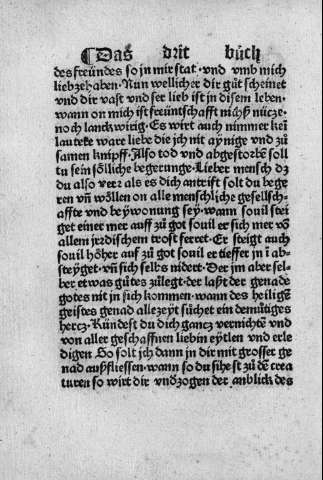 ¶ Das drit büch
des freündes so in mir stat · vnd vmb mich
liebzehaben · Nun wellicher dir gůt scheinet
vnd dir vast vnd ser lieb ist in disem leben ·
wann on mich ist freüntschafft nichß nücze ·
noch lanckwirig · Es wirt auch nimmer kein
lauteke ware liebe die jch nit aynige vnd zů
samen knipff · Also tod vnd abgestorbē soll
tu sein sölliche begerunge · Lieber mensch dz
du also verr als es dich antrift solt du bege
ren vn̄ wöllen on alle menschliche gesellsch⸗
affte vnd beywonung sey · wann souil stei
get einer mer auff zů got souil er sich mer vō
allem jrdischem trost ferret · Er steigt auch
souil höher auf zů got souil er tieffer in i ab⸗
steyget · vn̄ sich selbs nidert · Der jm aber sel⸗
ber etwas gůtes zůlegt · der laßt der genade
gotes nit in sich kommen · wann des heiligē
geistes genad allezeyt sůchet ein demůtiges
hercz · Kündest du dich gancz vernichtē vnd
von aller geschaffnen liebin eytlen vnd erle
digen So solt jch dann in dir mit grosser ge
nad außfliessen · wann so du sihest zů dē crea
turen so wirt dir vndzogen der anblick des